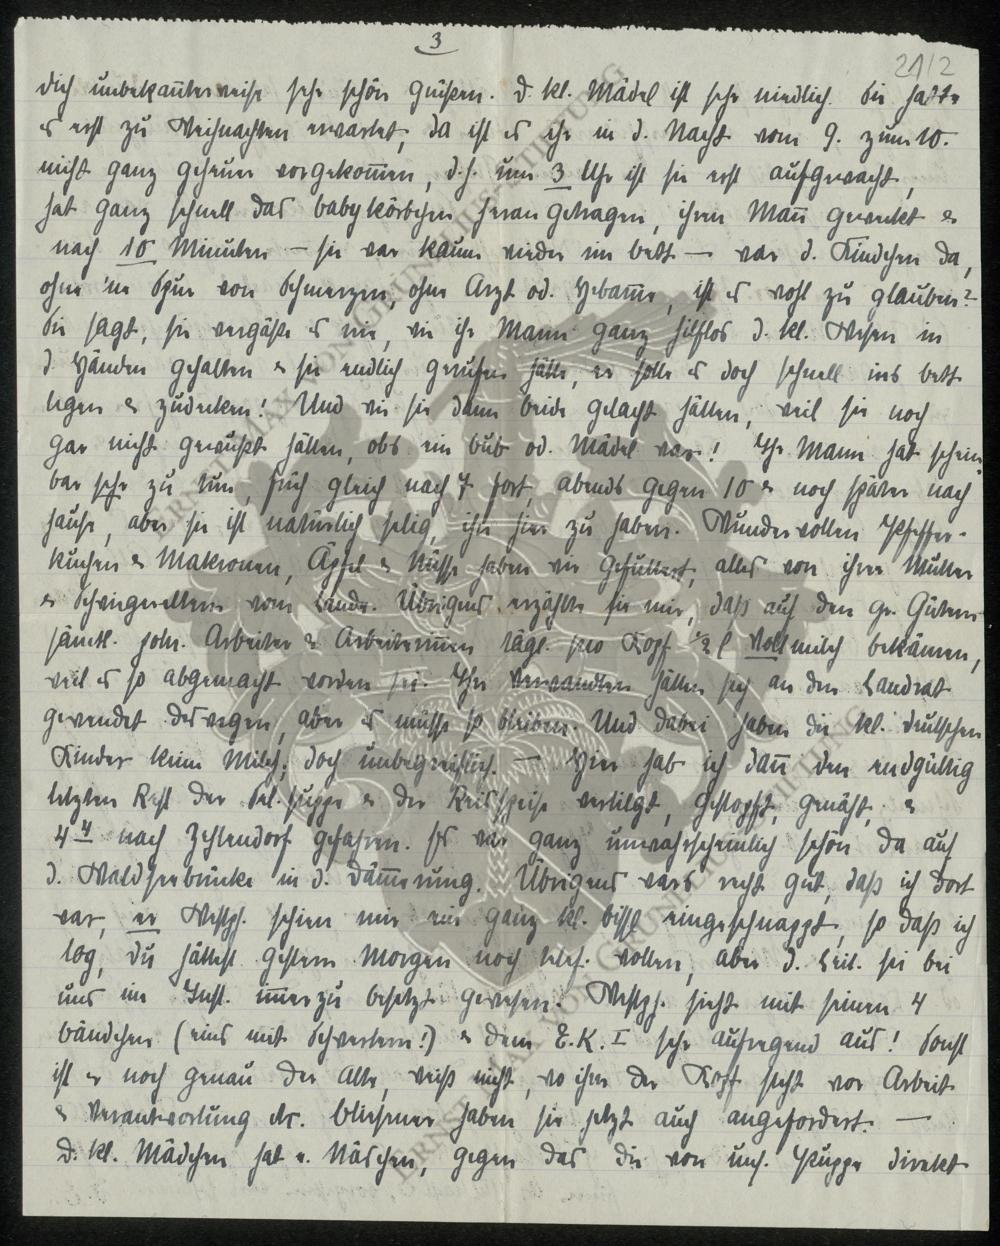 3
21/2
dich unbekannterweise sehr schön grüßen. D. kl. Mädel ist sehr niedlich. Sie hatte
es erst zu Weihnachten erwartet, da ist es ihr in d. Nacht vom 9. zum 10.
nicht ganz geheuer vorgekom̄en, d.h. um 3 Uhr ist sie erst aufgewacht,
hat ganz schnell das Babykörbchen herangetragen, ihren Man̄ geweckt &
nach 10 Minuten – sie war kaum wieder im Bett – war d. Kindchen da,
ohne 'ne Spur von Schmerzen, ohne Arzt od. Hebam̄e, ist es wohl zu glauben?
Sie sagt, sie vergäße es nie, wie ihr Mann ganz hilflos d. kl. Wesen in
d. Händen gehalten & sie endlich gerufen hätte, er solle es doch schnell ins Bett
legen & zudecken! Und wie sie dann beide gelacht hätten, weil sie noch
gar nicht gewußt hätten, obs ein Bub od. Mädel war! Ihr Mann hat schein-
bar sehr zu tun, früh gleich nach 7 fort, abends gegen 10 & noch später nach
hause, aber sie ist natürlich selig, ihn hier zu haben. Wundervollen Pfeffer-
kuchen & Makronen, Äpfel & Nüsse haben wir gefuttert, alles von ihrer Mutter
& Schwiegereltern vom Lande. Übrigens erzählte sie mir, daß auf den gr. Gütern
sämtl. poln. Arbeiter & Arbeiterin̄en tägl. pro Kopf ½ l Vollmilch bekämen,
weil es so abgemacht worden sei. Ihre Verwandten hätten sich an den Landrat
gewendet deswegen, aber es müsse so bleiben. Und dabei haben die kl. deutschen
Kinder keine Milch; doch unbegreiflich. – Hier hab ich dan̄ den endgültig
letzten Rest der Sel.suppe & der Reisspeise vertilgt, gestopft, genäht, &
4 nach Zehlendorf gefahren. Es war ganz unwahrscheinlich schön da auf
d. Waldseebrücke in d. Däm̄erung. Übrigens wars recht gut, daß ich dort
war, er Westph. schien mir ein ganz kl. bissl eingeschnappt, so daß ich
log, du hättest gestern Morgen noch telef. wollen, aber d. Leit. sei bei
uns im Inst. im̄erzu besetzt gewesen. Westph. sieht mit seinen 4
Bändchen (eins mit Schwertern!) & dem E.K. I sehr aufregend aus! Sonst
ist er noch genau der Alte, weiß nicht, wo ihm der Kopf steht vor Arbeit
& Verantwortung etc. haben sie jetzt auch angefordert. –
D. kl. Mädchen hat e. Näschen, gegen das die von uns. Puppe direkt
ERNST MAX VON GRUNELIUS-STIFTUNG
ERNST MAX VON GRUNELIUS-STIFTUNG